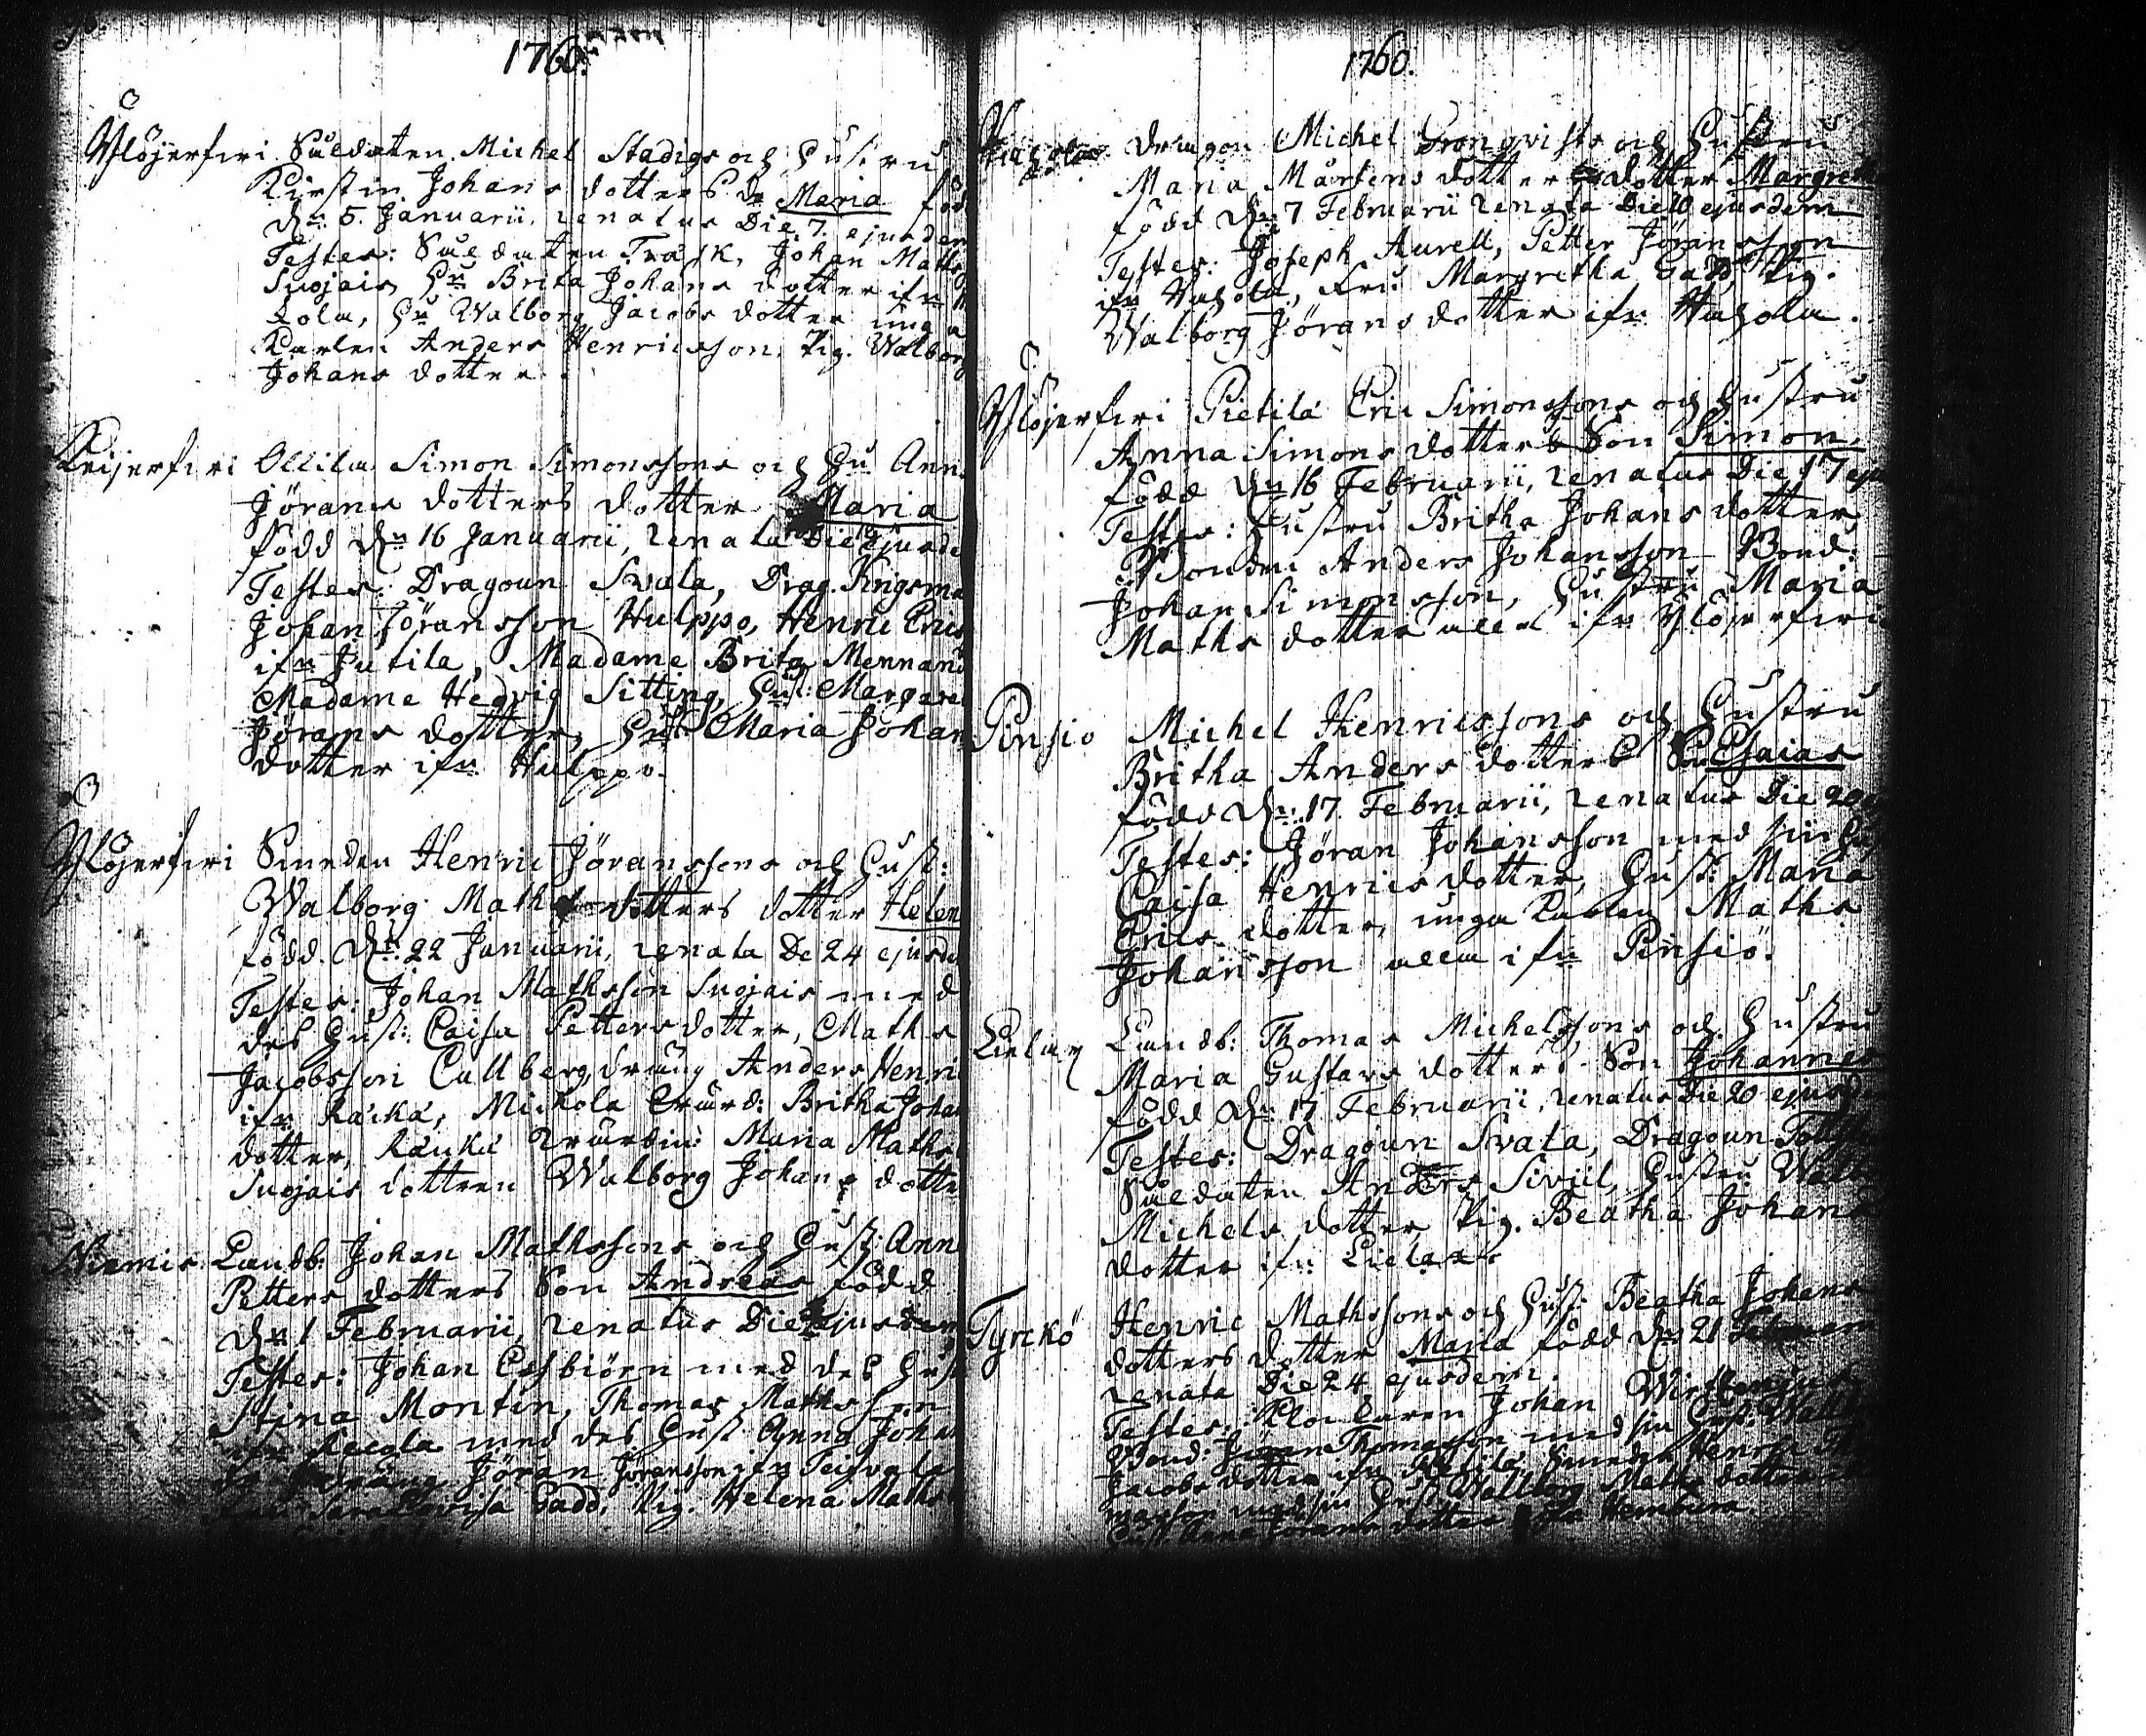 1760.
Ylöjerfwi Sueldaten Michel Stadigs och Hustru
Kirstin Johans dotters dr Maria föd
dn 5. Januarii, renatus Die 7. ejusdem
Testes: Sueldaten Träsk, Johan Maths
Suojais Hu Brita Johans dotter ifn
kola, Hu Walborg Jacobs dotter unga
Karlen Anders Henricsson, Pig. Walborg
Johans dotter.
Keijerfwi Ollila Simon Simonssons och Hu Ann
Jörans dotters dotter Maria
född dn 16 Januarii, renata Die ejusde
Testes: Dragoun Svala, Drag. Krigsma
Johan Jöransson Hulppo, Henric Eric
ifn Jutila, Madame Brita Mennand
Madame Hedvig Sitting, Hust: Margare
Jörans dotter, Hust Maria Johan
dotter ifn Hulppo.
Ylöjerfwi Smeden Henric Jöranssons och Hust:
Walborg Maths dotters dotter Helen
född dn 22 Januarii, renata De 24 ejusde
Testes: Johan Mathsson Suojais med
des Hust: Caisa Petters dotter, Maths
Jacobsson Cullberg, dräng Anders Henri
ifn Räikä, Mickola Britha Johan
dotter, Räikä Maria Maths
Suojais dottren Walborg Johans dotte
Niemis Landb. Johan Mathssons och Hust: Ann
Petters dotters Son Andreas född
dn 1 Februarii, renatus Die ejusdem
Testes: Johan Esbiörn med des Hust
Stina Montin, Thomas Mathsson
ifn med des Hust Anna Johan
Jöran Jöransson ifn Teisvala
Sara Gadd, Pig. Helena Maths
1760.
Haxola Dragon Michel Gronqvists och Hustru
Maria Mårtens dotters dotter Margreth
född dn 7 Februarii renata Die 10 ejusdem
Testes: Joseph Aurell, Petter Jöransson
ifn Haxola, Fru Margretha Gadd, Pig.
Walborg Jörans dotter ifn Haxola.
Ylöjerfwi Pietilä Eric Simonssons och Hustru
Anna Simons dotters Son Simon,
född dn 16 Februarii, renatus Die 17 eju
Testes: Hustru Britha Johans dotter,
Bonden Anders Johansson Bond:
Johan Simonsson, Hustru Maria
Maths dotter alla ifn Ylöjerfwi
Pinsio Michel Henricssons och Hustru
Britha Anders dotters Son Esaias
född dn 17 Februarii, renatus Die 20
Testes: Jöran Johansson med sin Hust
Caisa Henrics dotter, Hust: Maria
Erics dotter, unga Karlen Maths
Johansson alla ifn Pinsiö.
Lielax Landb: Thomas Michelssons och Hustru
Maria Gustavs dotters Son Johannes
född dn 17 Februarii, renatus Die 20 ejusdem
Testes: Dragoun Svala, Dragoun
Sueldaten Anders Siviil, Hustru
Michels dotter, Pig. Beatha Johans
dotter ifn Lielax
Tyrckö Henric Mathssons och Hust: Beatha Johans
dotters dotter Maria född dn 21
renata Die 24 ejusdem.
Testes: Klockaren Johan
Bond: Thomasson med sin Hust:
Jacobs dotter ifn Smeden Henric
med sin Hust: Wallborg Maths dotter
Hust. Anna Jörans dotter